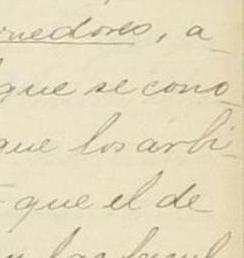 nedores, a
que se cono
que los arbi
- que el de